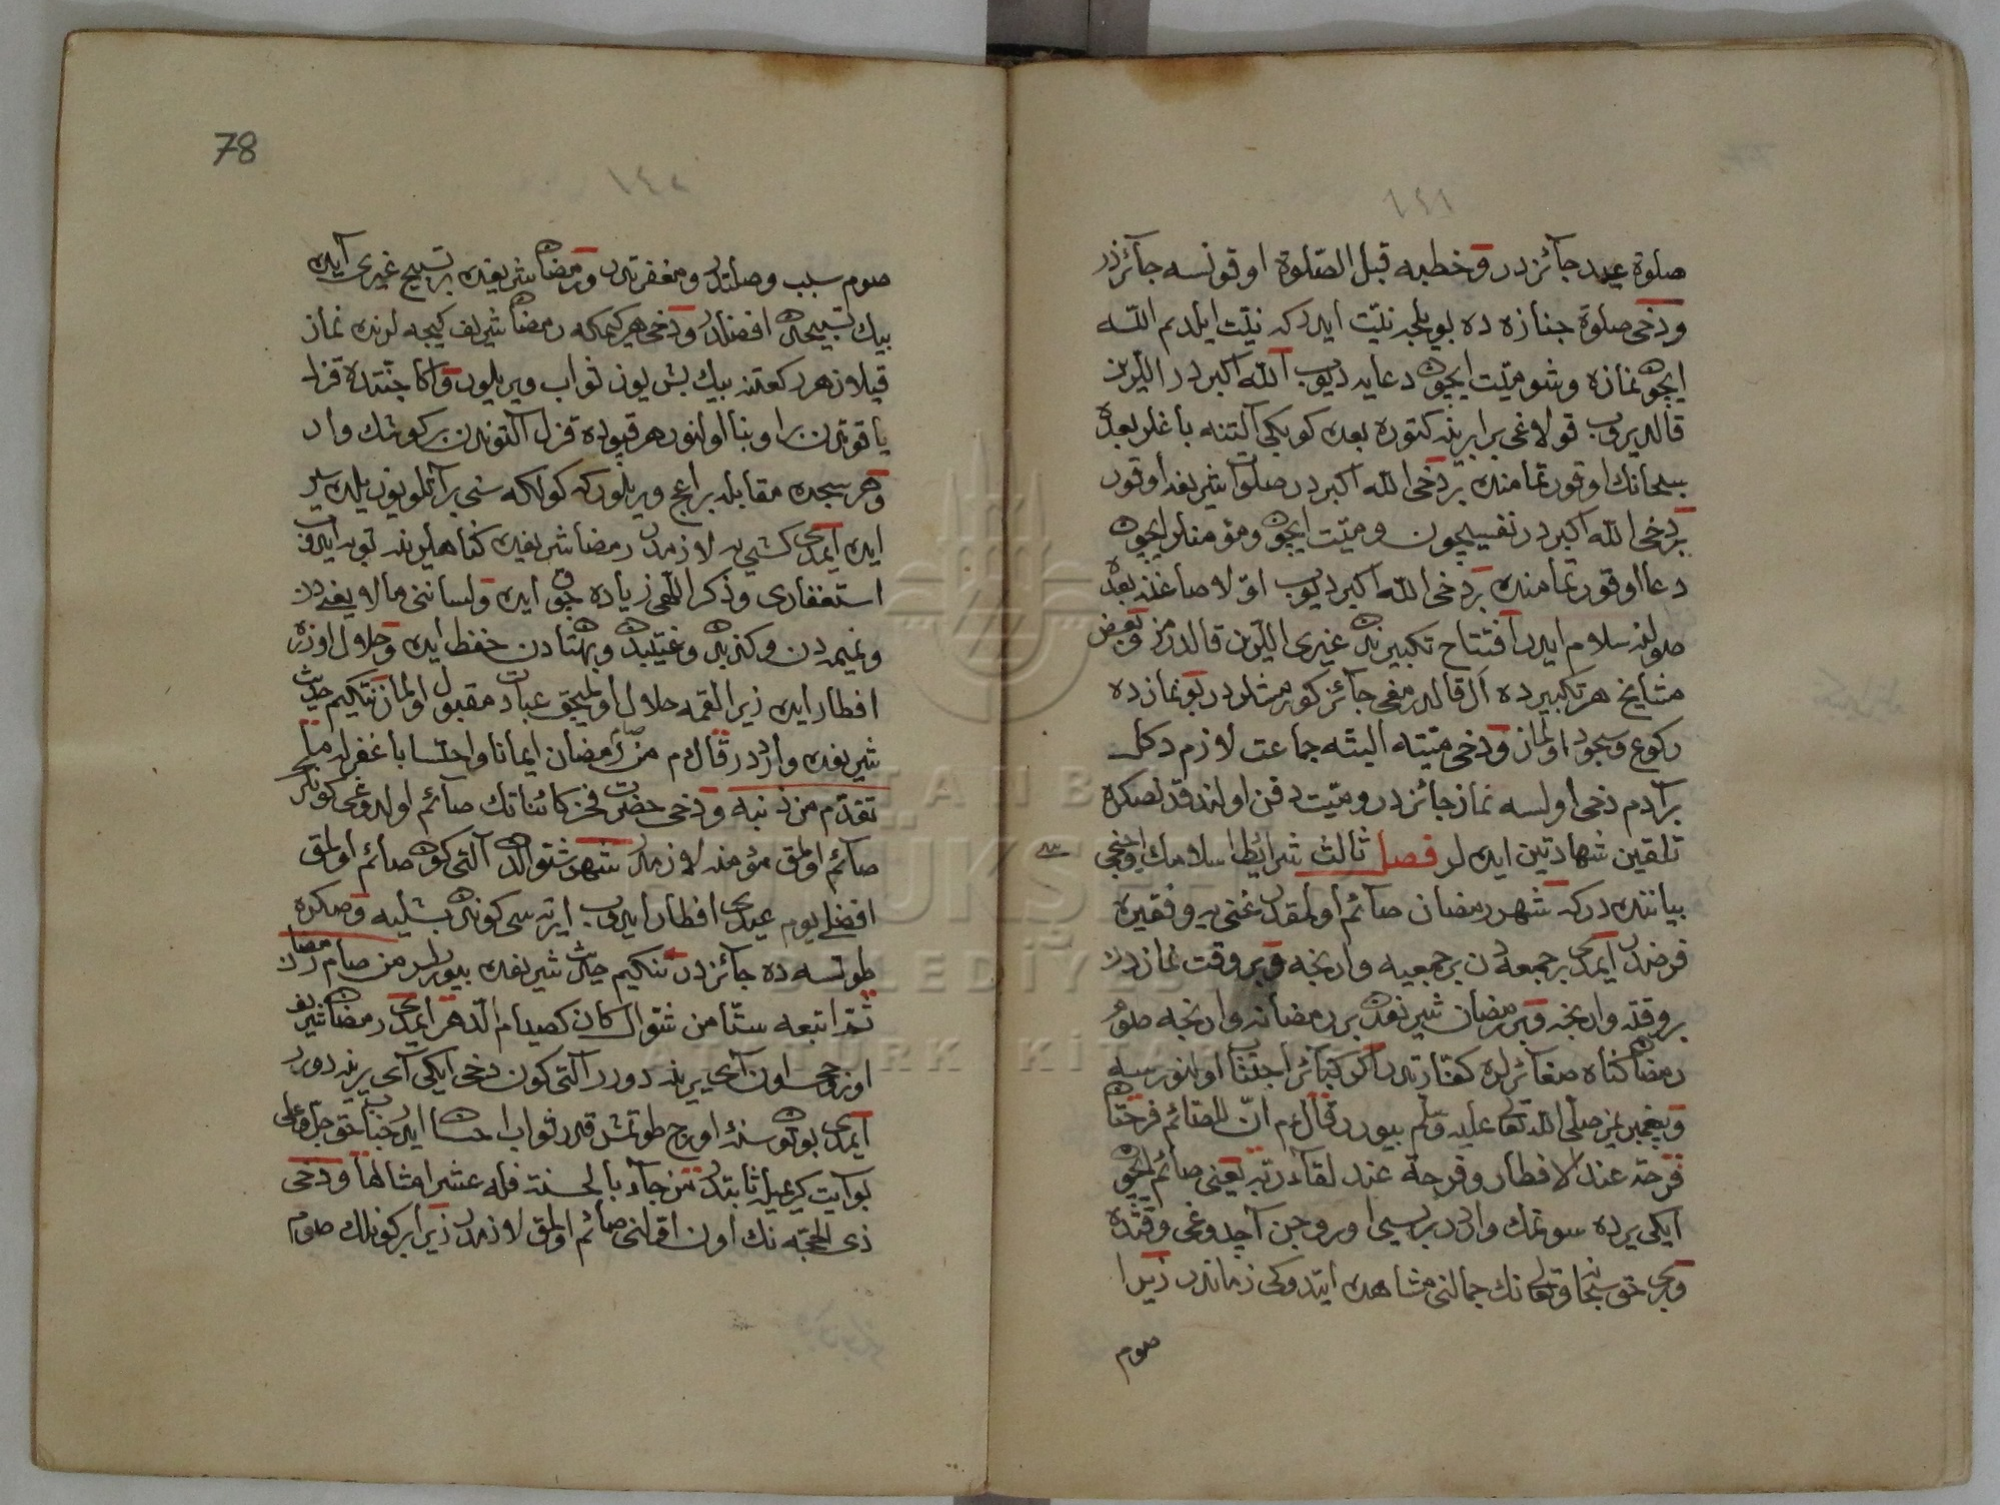 ١٤١
صلوة عيد جآئزدر و خطبه قبل الصّلوة اوقونسه جآئزدر
ودخى صلوة جنازه ده بويلجه نيّت ايدر كه نيّت ايلدم اللّه
ايچون نمازه وشو ميّت ايچون دعايه ديوب اللّه اكبر در اللرين
قالديروب قولاغى برابرينه كتوره بعده كوبكى آلتنه باغلر بعده
سبحانك اوقور تمامنده بر دخى اللّه اكبر در صلوات شريفه اوقور
بر دخى اللّه اكبر در نفسيچون وميّت ايچون ومؤمنلر ايچون
دعا اوقور تمامنده بر دخى اللّه اكبر ديوب اوّلا صاغنه بعده
صولنه سلام ايدر افتتاح تكبيرندن غيرى اللرين قالدرمز وبعض
مشايخ هر تكبيرده ال قالدرمغى جآئز كورمشلردر بو نمازده
ركوع وسجود اولماز ودخى ميّته البتّه جماعت لازم دكل
بر آدم دخى اولسه نماز جائزدر وميّت دفن اولندقدنصكره
تلقين شهادتين ايده لر فصل ثالث شرايط اسلامك اوچنجى
بياننده در كه شهر رمضان صآئم اولمقدر غنى يه وفقيره
فرضدر ايمدى بر جمعه دن بر جمعيه وارنجه و بر وقت نمازدن
بر وقته وارنجه و بر رمضان شريفدن بر رمضانه وارنجه صوم
رمضان كناه صغائرلره كفّارتدر اكر كبائر اجتناب اولنورسه
و پيغمبرمز صلّى اللّه تعالى عليه وسلّم بيوردر قال م انّ للصّائم فرحتان
فرحة عند الافطار وفرحة عند لقآء ربّه يعنى صائم ايچون
ايكى يرده سونمك واردر برسيى اوروجن آچدوغى وقتده
وبرى حق سبحانه وتعالى نك جمالنى مشاهده ايتدوكى زماندر زيرا
صوم
78
١٤٢
صوم سبب وصلتدر ومغفرتدر و رمضان شريفده بر تسبيح غيرى آيده
بيك تسبيحدن افضلدر ودخى هر كيمكه رمضان شريف كيجه لرنده نماز
قيلا زهر ركعتنه بيك بش يوز ثواب ويريلور واكا جنّتده قزل
ياقوتدن براو بنا اولنور هر قپوده قزل آلتوندن بر كوشك وار
وهر سجده مقابله بر اغج ويريلور كه كولكه سنى بر آتلو يوز يلده سير
ايده ايمدى كشى يه لازمدر رمضان شريفده كناهلرينه توبه ايدوب
استغفارى وذكر اللّهى زياده چوق ايده ولساننى مالايعنيدن
ونميمه دن وكذبدن وغيبتدن وبهتاندن حفظ ايده و حلال اوزره
افطار ايده زيرا لقمه حلال اولميجق عبادت مقبول اولماز نتكيم حديث
شريفده واردر قال م من صام رمضان ايمانا واحتسابا غفر له ما
تقدّم من ذنبه ودخى حضرت فخر كائناتك صآئم اولدوغى كونلر
صآئم اولمق مؤمنه لازمدر شهر شوّالدن آلتى كون صائم اولمق
افضلى يوم عيدى افطار ايدوب ايرته سى كوندن بشليه و صكره
طوتسه ده جآئزدر نتكيم حديث شريفده بيورلر من صام رمضان
ثمّ اتبعه ستّا من شوّال كان كصيام الدّهر ايمدى رمضان شريف
اوروجى اون آى يرينه دورر آلتى كون دخى ايكى آى يرينه دورر
ايمدى بوتون سنه اورج طوتمش قدر ثواب احسان ايدر جناب حق جلّ وعلى
بو آيت كريميله ثابتدر من جآء بالحسنة فله عشر امثالها ودخى
ذى الحجّه نك اون اوّلنى صآئم اولمق لازمدر زيرا بر كونلك صوم